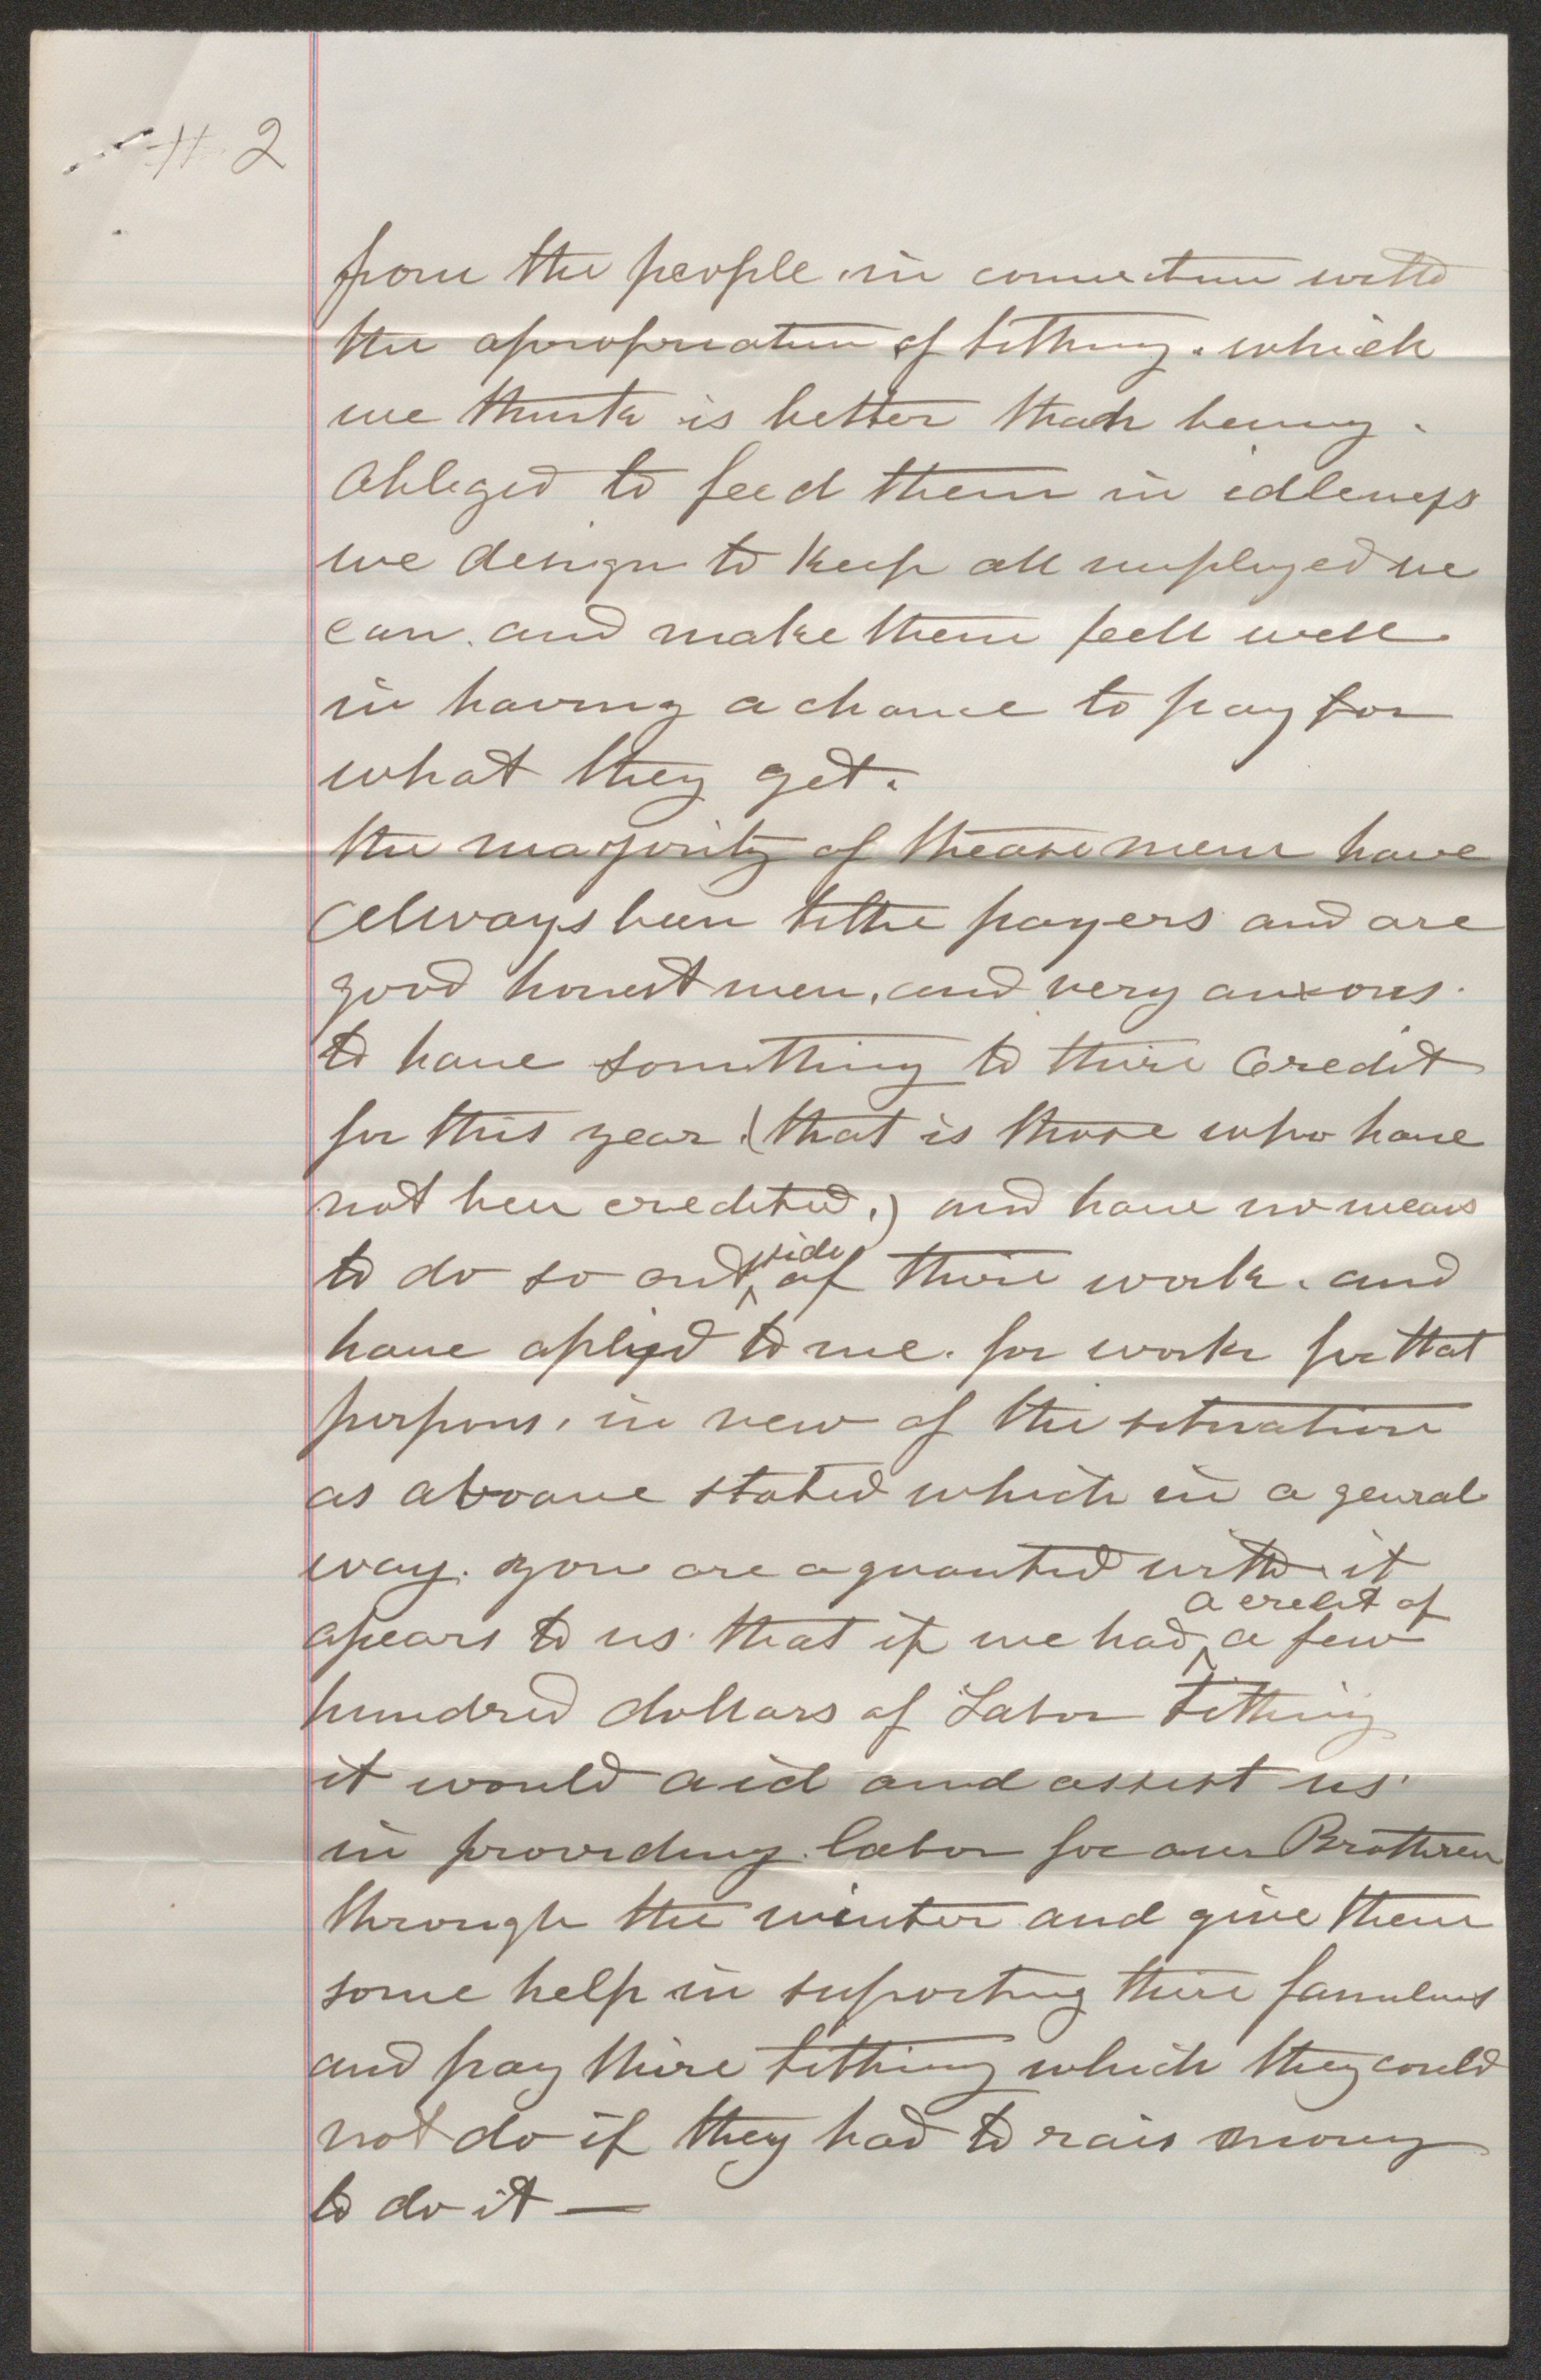 # 2
from the people in connection with
the apropriation of tithing. which
we think is better than being.
Obleged to feed them in idleness
we design to keep all employed we
can. and make them feell well
in having a chance to pay for
what they get.
the majority of thease men have
Always been tithe payers and are
good honest men, and very anxous
to have something to thire Credit
for this year. (that is those who have
not been credited.) and have no means
to do so out side of thire work. and
have aplyed to me. for work for that
purpous. in vew of the situation
as aboave stated which in a genral
way. you are aquanted with it
a credit of
apears to us that if we had a few
hundred dollars of Labor tithing
it would aid and assist us
in providing labor for our Brothren
through the winter and give them
some help in suporting thire familys
and pay thire tithing which they could
not do if they had to rais money
to do it —